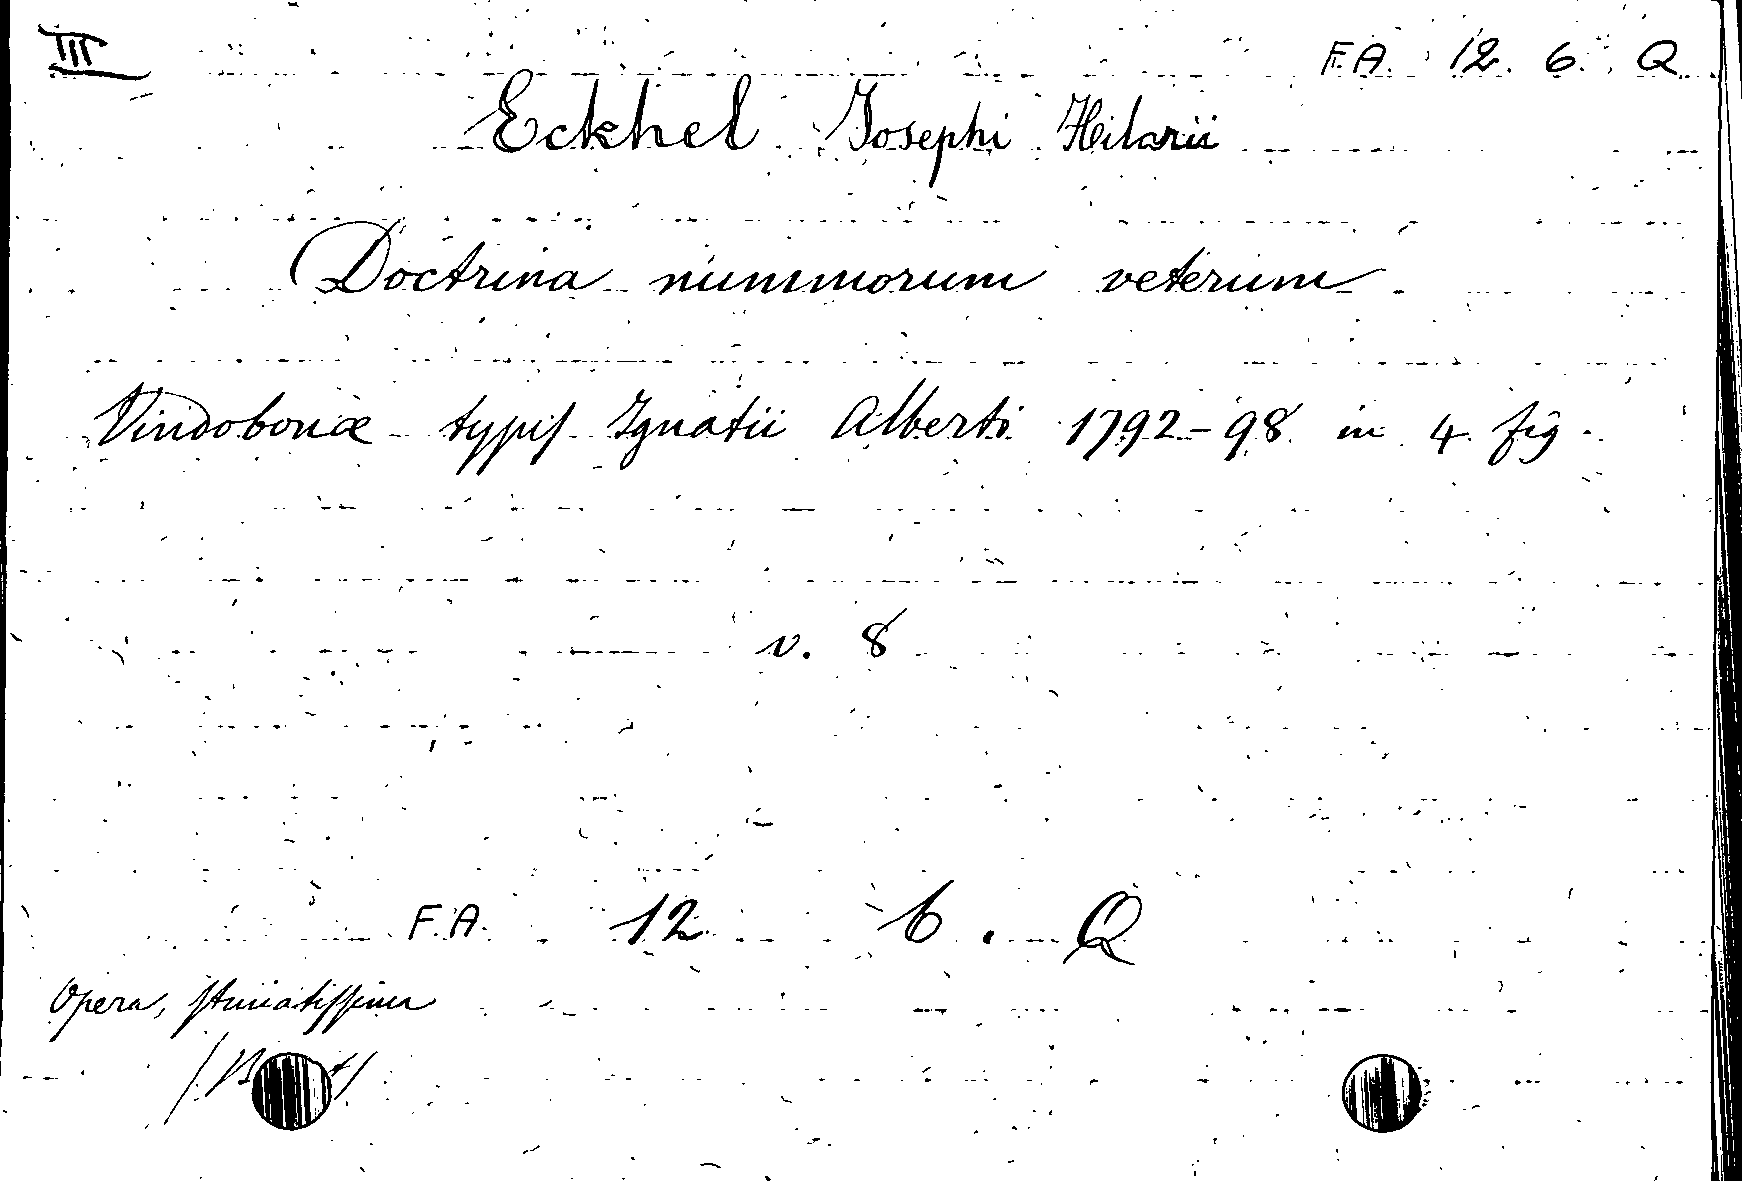 III
F.A. 12. 6. Q
Eckhel Josephi Hilarii
Doctrina nummorum veterum
Vindobonæ typis Ignatii Alberti 1792-98 in 4 fig.
v. 8
F.A. 12 6. Q
Opera, stimatissima